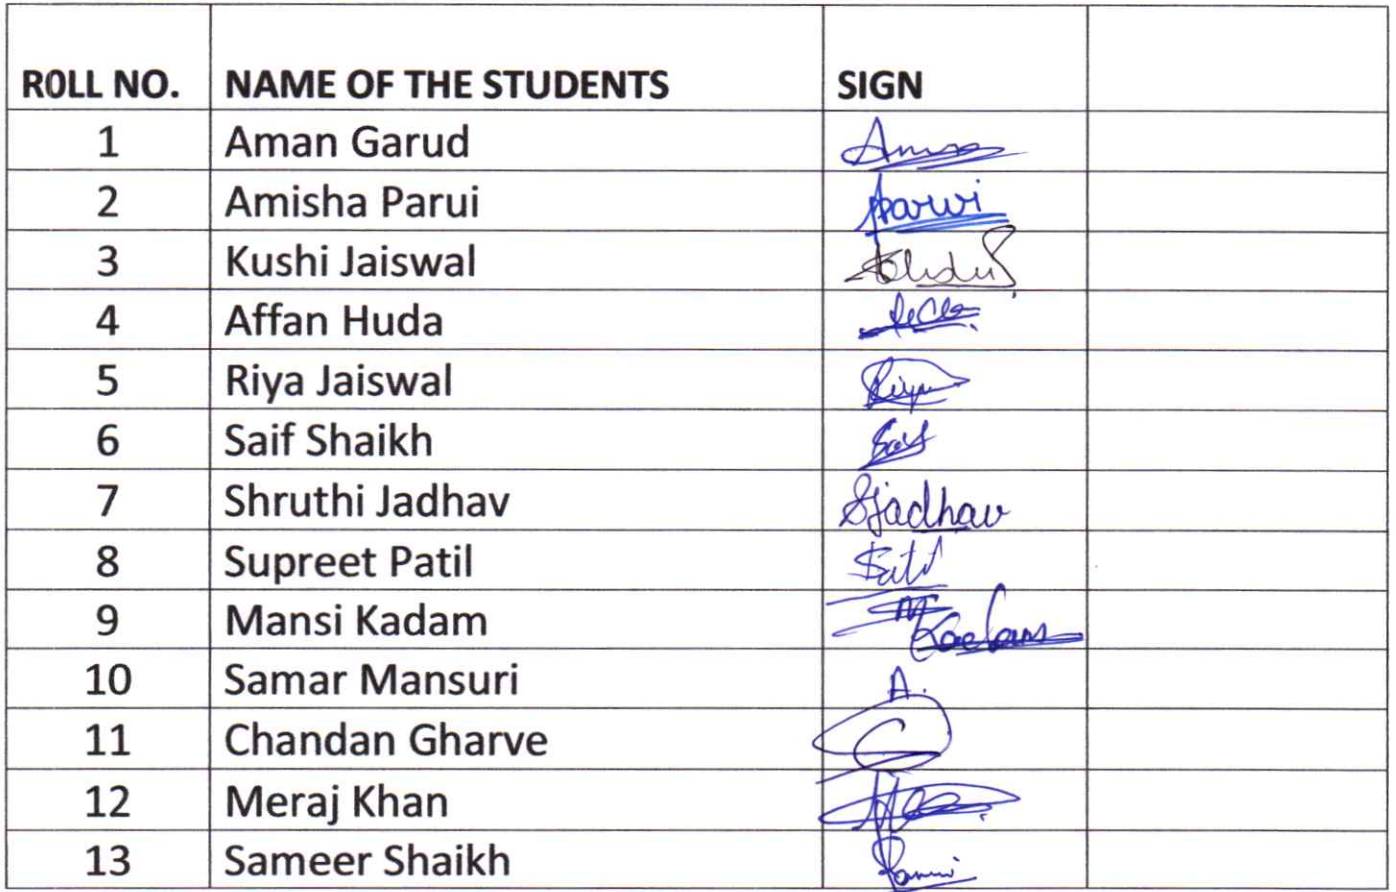 ROLL NO. NAME OF THE STUDENTS SIGN
1 Aman Garud
2 Amisha Parui Aparui
3 Kushi Jaiswal
4 Affan Huda
5 Riya Jaiswal Riya
6 Saif Shaikh Saif
7 Shruthi Jadhav SJadhav
8 Supreet Patil
9 Mansi Kadam M Kadam
10 Samar Mansuri A.
11 Chandan Gharve
12 Meraj Khan
13 Sameer Shaikh